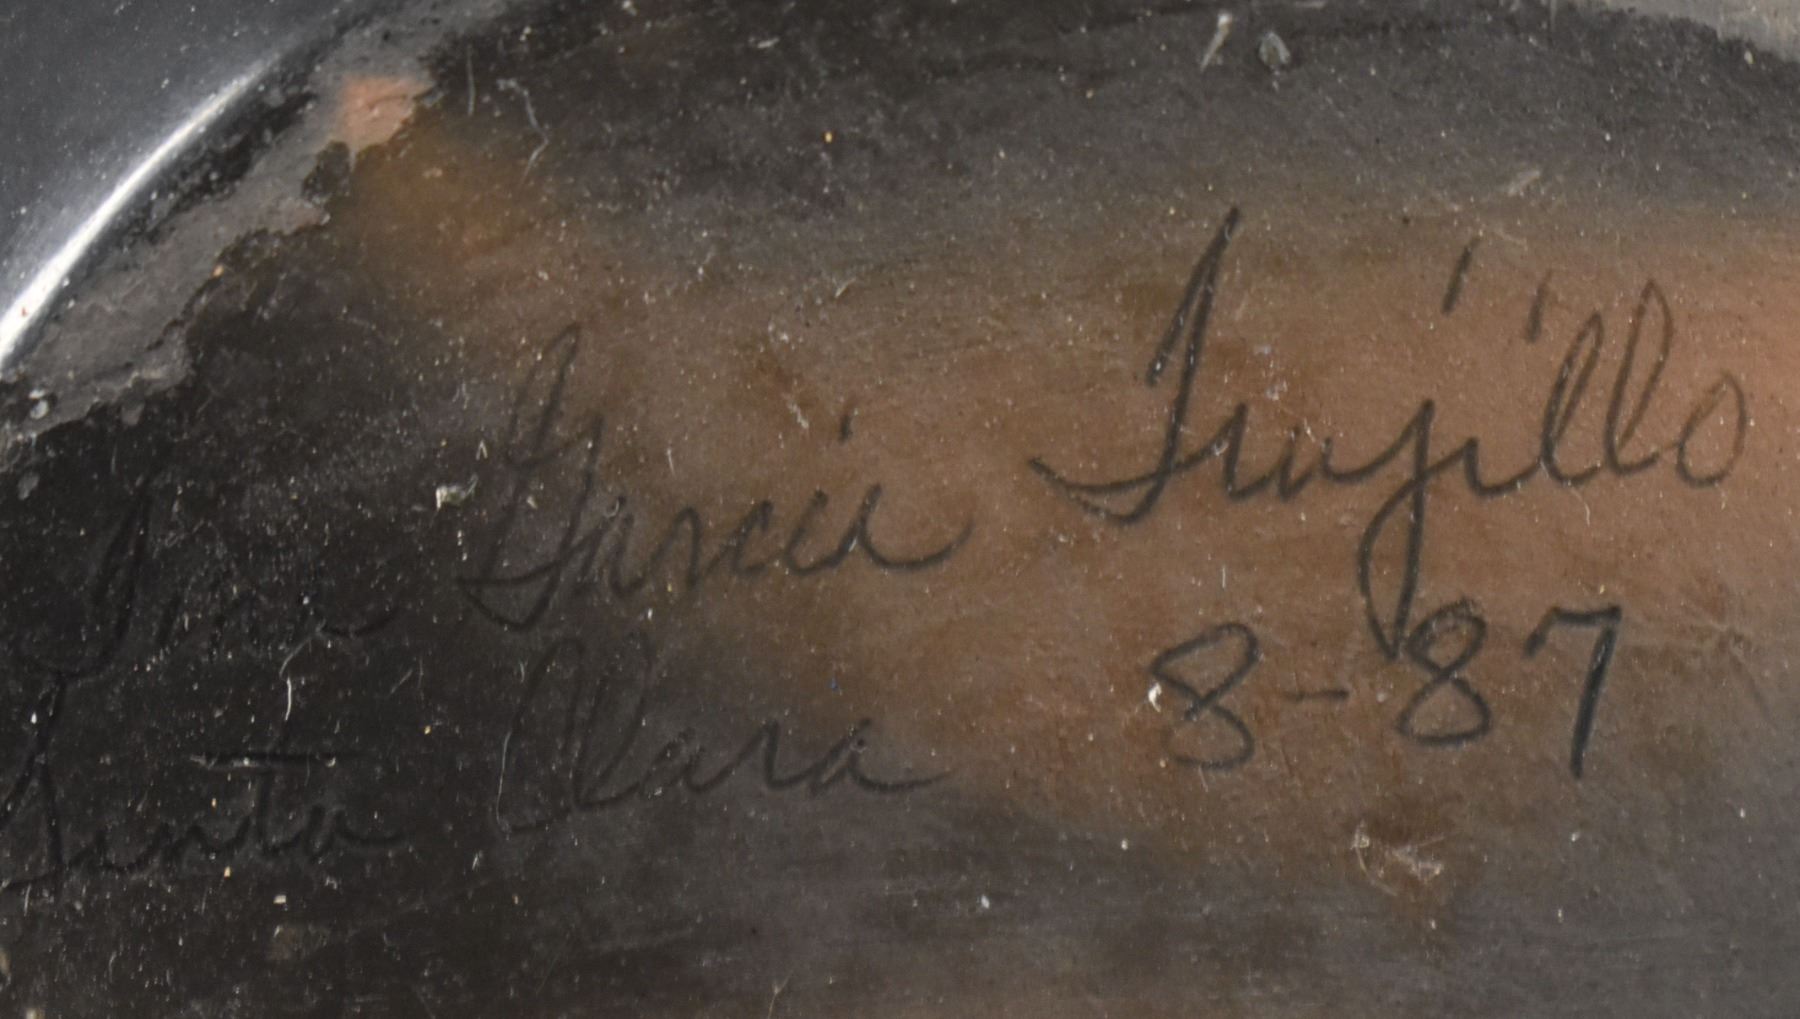 Tina Garcia Trujillo
Santa Clara 8-87